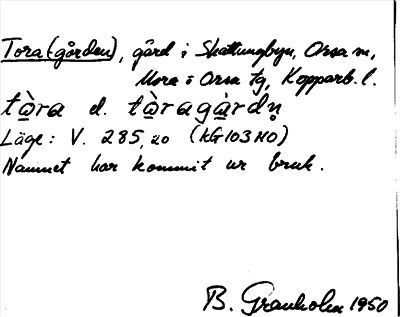 Tora(gården), gård i Skattungbyn, Orsa sn,
Mora o Orsa tg, Kopparb. l.
tòra el. tòragàrdn̥
Läge: V. 285,20 (KG103HO)
Namnet har kommit ur bruk.
B. Granholm 1950